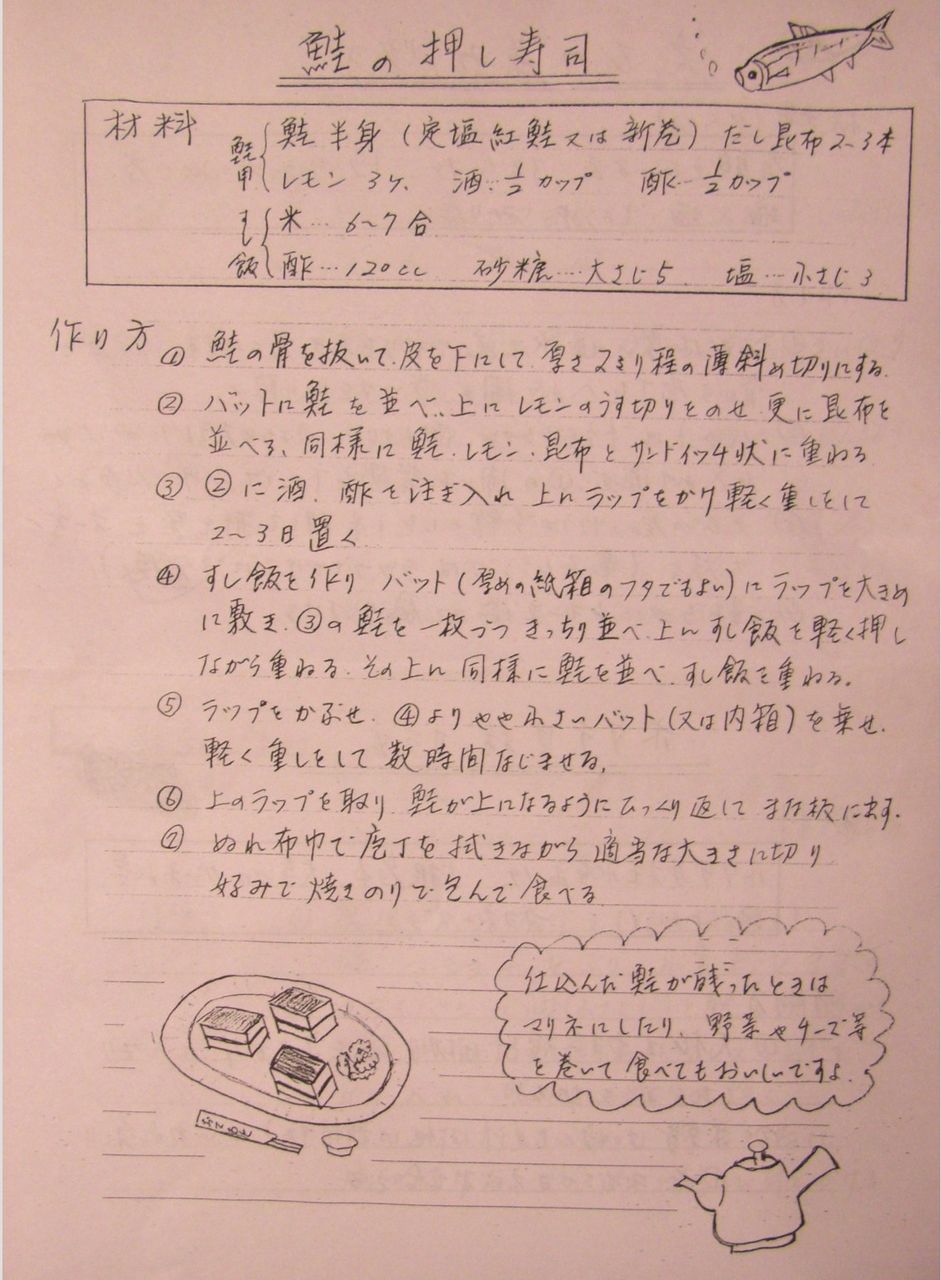 鮭の押し寿司
材料
鮭用 鮭半身（定塩紅鮭又は新巻）だし昆布2〜3本
レモン3ヶ、酒…1/2カップ 酢…1/2カップ
すし飯 米…6〜7合
酢…120cc 砂糖…大さじ5、塩…小さじ3
作り方
① 鮭の骨を抜いて、皮を下にして、厚さ2ミリ程の薄斜め切りにする。
② バットに鮭を並べ、上にレモンのうす切りをのせ更に昆布を
並べる、同様に鮭、レモン、昆布とサンドイッチ状に重ねる
③ ②に酒、酢を注ぎ入れ上にラップをかけ軽く重しをして
2〜3日置く
④ すし飯を作り バット（厚めの紙箱のフタでもよい）にラップを大きめ
に敷き、③の鮭を一枚づつきっちり並べ、上にすし飯を軽く押し
ながら重ねる、その上に同様に鮭を並べ、すし飯を重ねる。
⑤ ラップをかぶせ、④よりやや小さいバット（又は内箱）を乗せ、
軽く重しをして数時間なじませる。
⑥ 上のラップを取り、鮭が上になるようにひっくり返してまな板に出す。
⑦ ぬれ布巾で庖丁を拭きながら適当な大きさに切り
好みで焼きのりで包んで食べる
仕込んだ鮭が残ったときは
マリネにしたり、野菜やチーズ等
を巻いて食べてもおいしいですよ。
おてもと